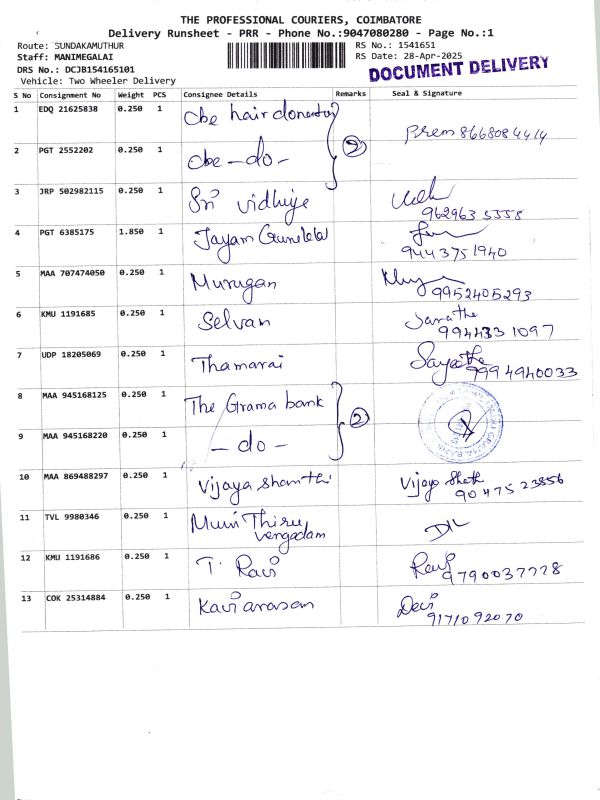 THE PROFESSIONAL COURIERS, COIMBATORE
Delivery Runsheet - PRR - Phone No.:9047080280 - Page No.:1
Route: SUNDAKAMUTHUR
RS No.: 1541651
Staff: MANIMEGALAI
RS Date: 28-Apr-2025
DRS No.: DCJB154165101
DOCUMENT DELIVERY
Vehicle: Two Wheeler Delivery
S No Consignment No Weight PCS Consignee Details Remarks Seal & Signature
1 EDQ 21625838 0.250 1 Cbe hair
Prem 8668084414
2 PGT 2552202 0.250 1 Cbe - do - 2
3 JRP 502982115 0.250 1 Sri Vidhiye
9629635558
4 PGT 6385175 1.850 1 Jayam
9443751940
5 MAA 707474050 0.250 1 Murugan
9952405293
6 KMU 1191685 0.250 1 Selvam
9944331097
7 UDP 18205069 0.250 1 Thamarai
9994940033
8 MAA 945168125 0.250 1 The Grama bank 2
9 MAA 945168220 0.250 1 - do -
10 MAA 869488297 0.250 1 Vijaya Shanthi Vijaya
9047523556
11 TVL 9980346 0.250 1 Muni Thiru
vengadam
12 KMU 1191686 0.250 1 T. Ravi Ravi
9790037728
13 COK 25314884 0.250 1 Kavi arasan Devi
9171092070